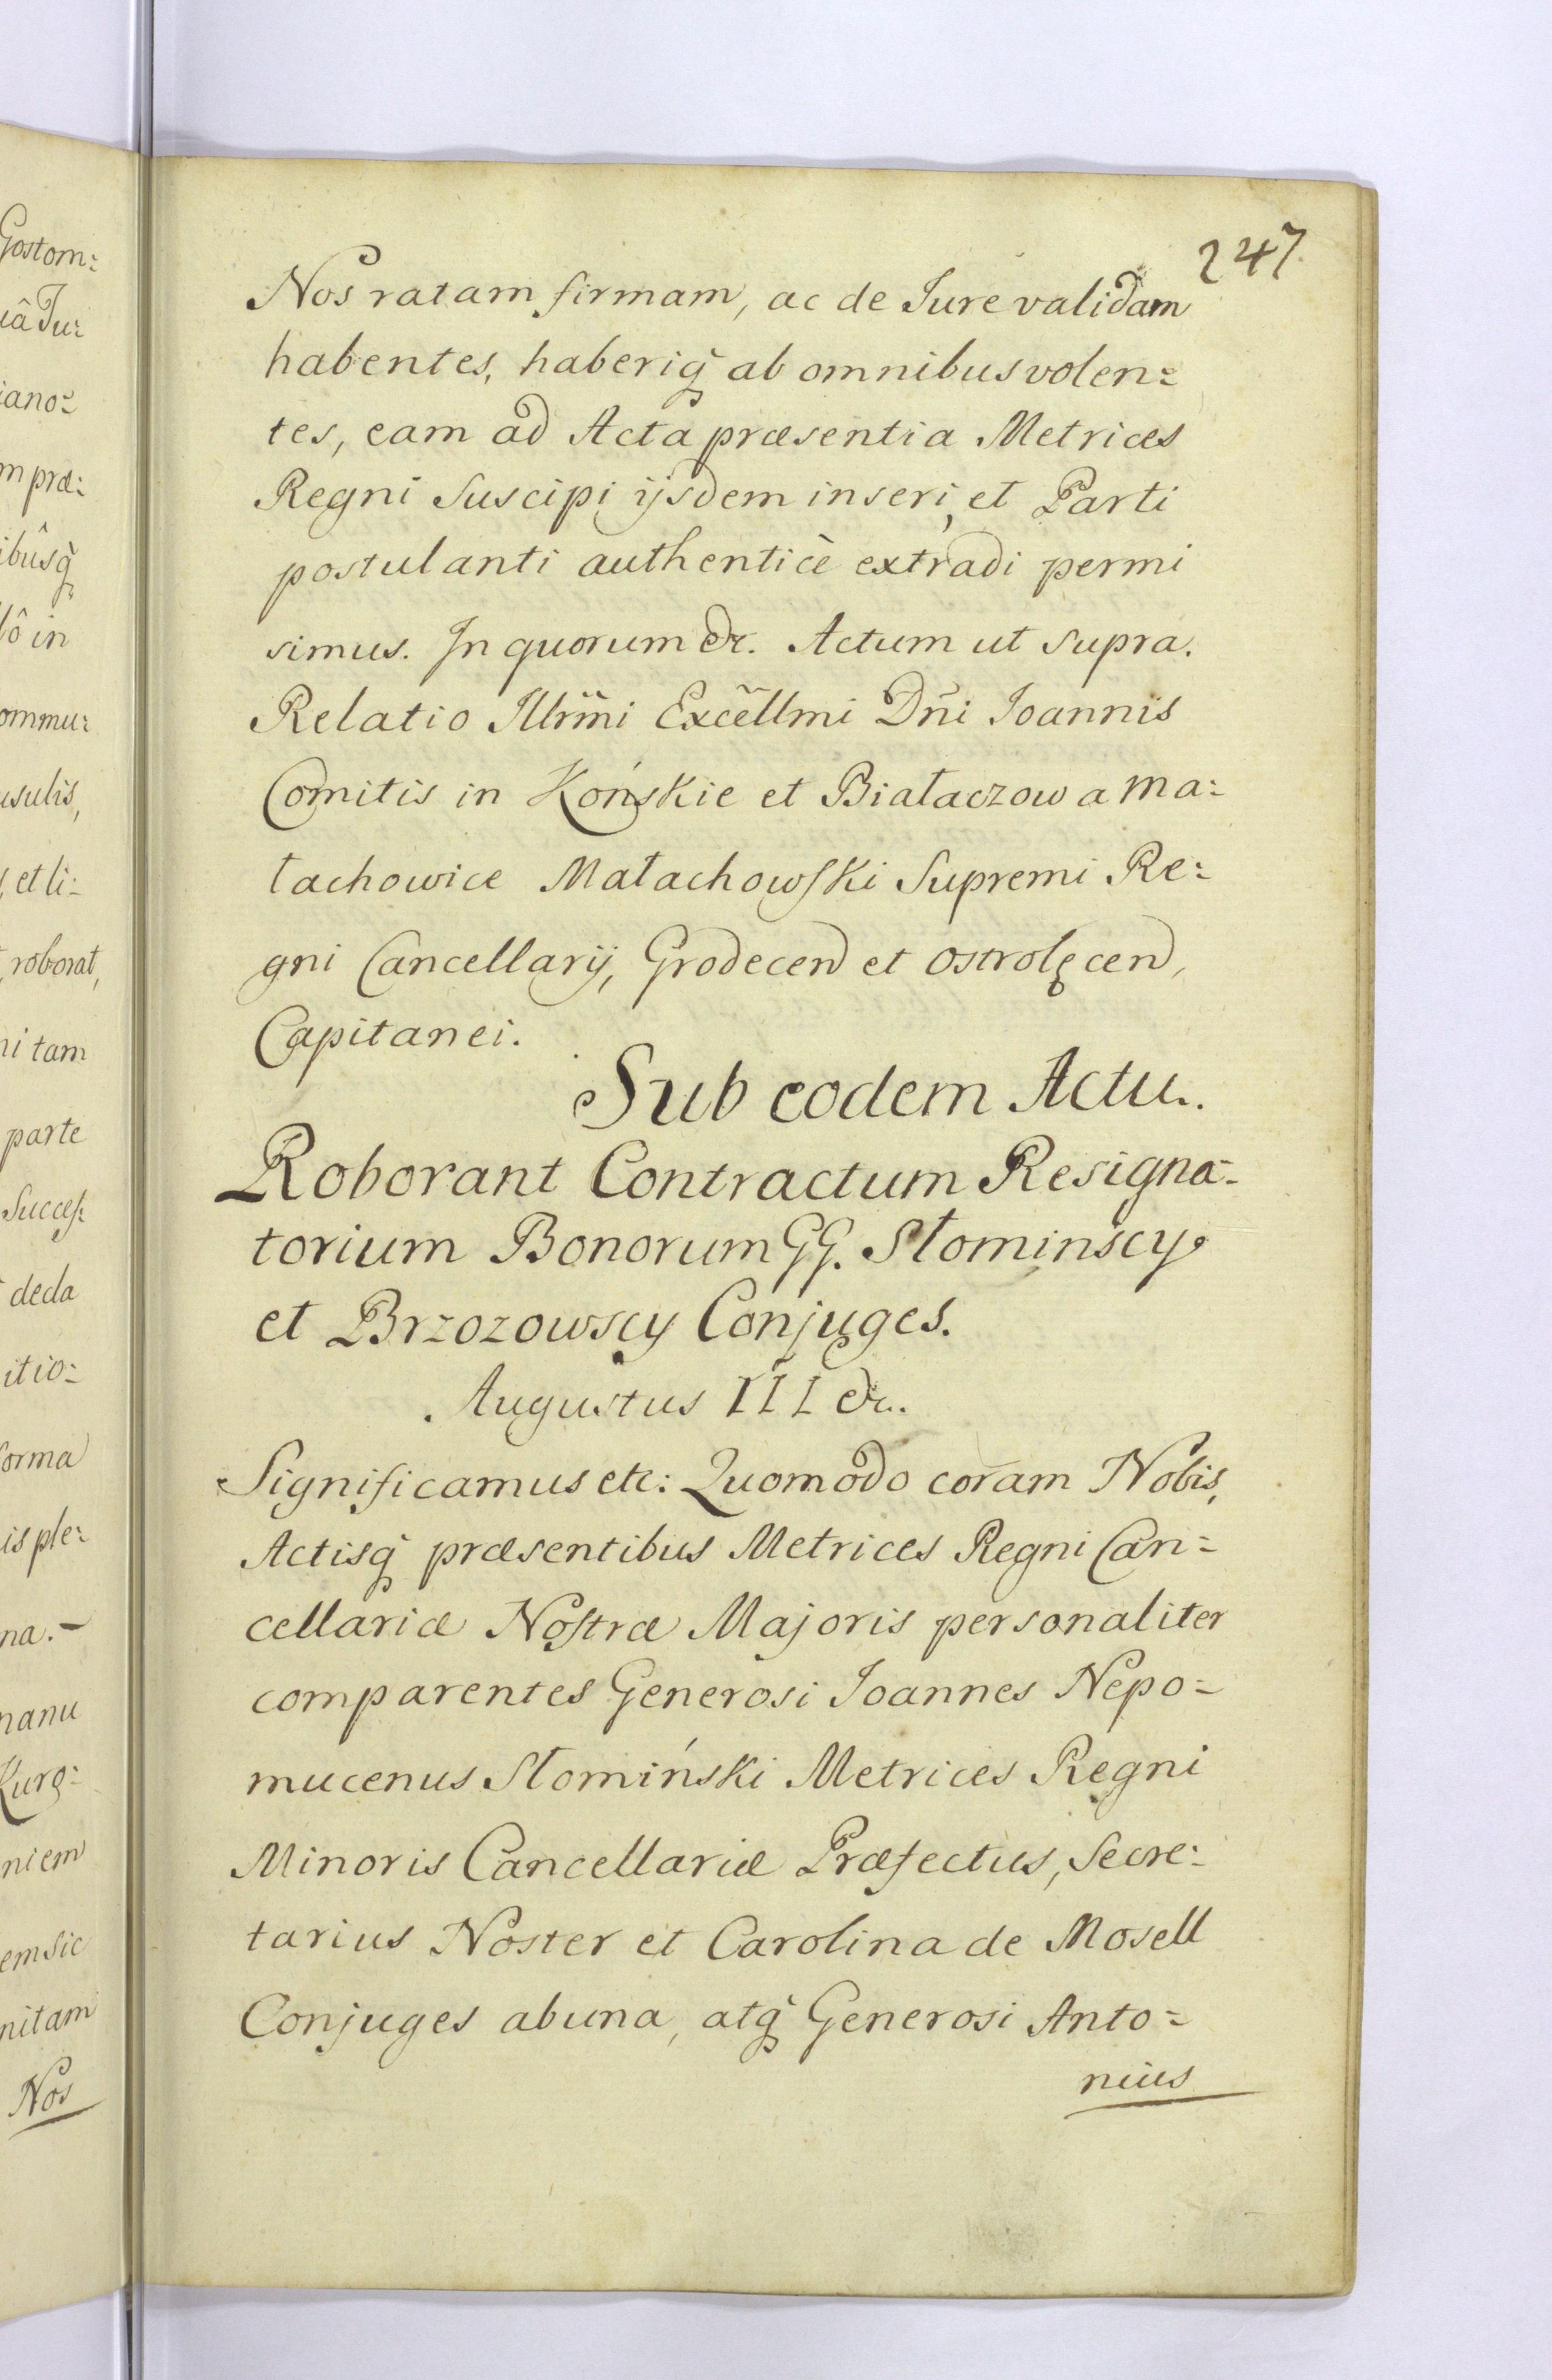 247
Nos ratam firmam, ac de Jure validam
habentes, haberiq̀ ab omnibus volen=
tes, eam ad Acta præsentia Metrices
Regni Suscipi ijsdem inseri, et Parti
postulanti authenticè extradi permi
simus. In quorum &c. Actum ut Supra.
Relatio Illr̃mi Excẽllmi Dñi Joannis
Comitis in Końskie et Białaczow a Ma=
łachowice Małachowski Supremi Re=
gni Cancellarij, Grodecen et Ostrołęcen,
Capitanei.
Sub eodem Actu.
Roborant Contractum Resigna=
torium Bonorum GG. Słominscy
et Brzozowscy Conjuges.
Augustus III &c.
Significamus etc: Quomodo coram Nobis,
Actisq̀ præsentibus Metrices Regni Can=
cellariæ Nostræ Majoris personaliter
comparentes Generosi Joannes Nepo=
mucenus Słomiński Metrices Regni
Minoris Cancellariæ Præfectus, Secre=
tarius Noster et Carolina de Mosell
Conjuges ab una, atq̀ Generosi Anto=
nius
Gostom=
iâ Ju=
iano=
m præ=
ibûsq̀
lô in
ommu=
usulis,
, et li=
roborat,
ni tam
parte
Succes=
deda
itio=
forma
is ple=
na.-
manu
Kuro=
niem
em Sic
nitam
Nos